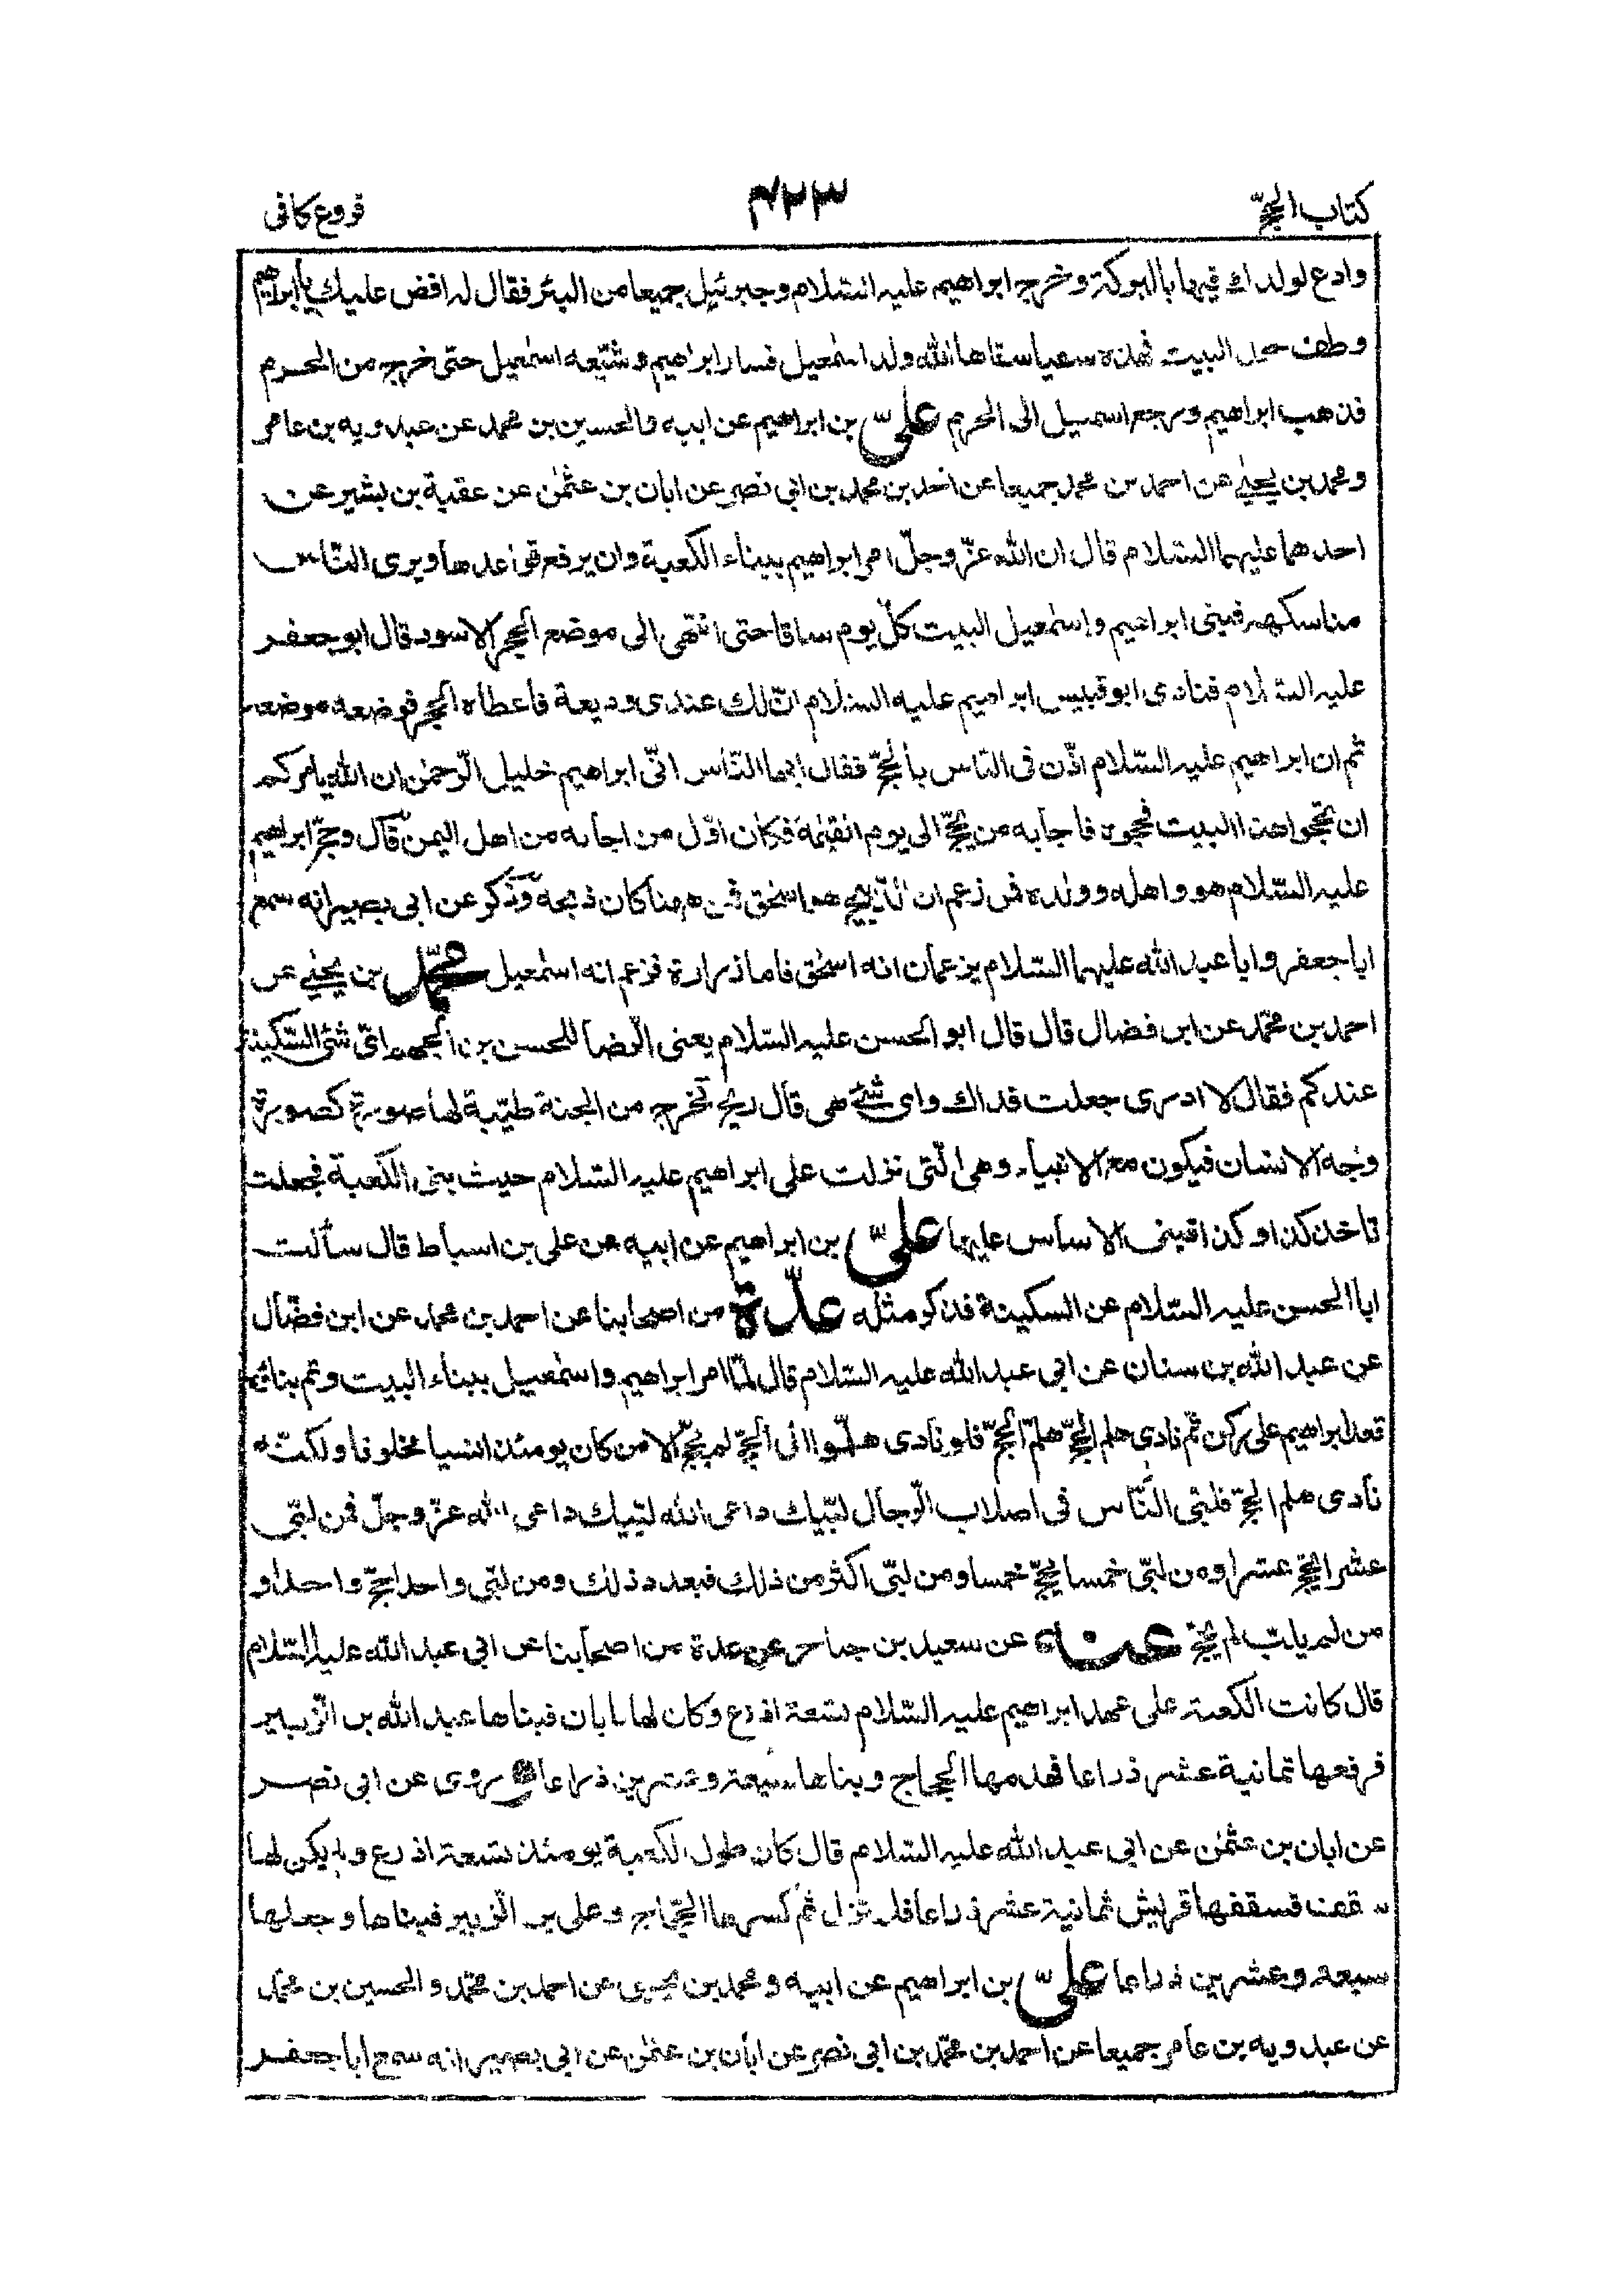 كتاب الحجّ
۴۲۳
فروع كافى
وادع لولدك فيها بالبركة وخرج ابراهيم عليه السلام وجبرئيل جميعا من البئر فقال له افض عليك يا ابراهيم
وطف حول البيت فهذه سقيا سقاها الله ولد اسمعيل فسار ابراهيم وشيّعه اسمعيل حتى خرج من الحرم
فذهب ابراهيم ورجع اسمعيل الى الحرم علىّ بن ابراهيم عن ابيه والحسين بن محمد عن عبدويه بن عامر
ومحمد بن يحيى عن احمد بن محمد جميعا عن احمد بن محمد بن ابى نصر عن ابان بن عثمن عن عقبة بن بشير عن
احدهما عليهما السّلام قال ان الله عزّ وجلّ امر ابراهيم ببناء الكعبة وان يرفع قواعدها ويرى النّاس
مناسكهم فبنى ابراهيم وإسمعيل البيت كلّ يوم ساقا حتى انتهى الى موضع الحجر الاسود قال ابو جعفر
عليه السّلام فنادى ابو قبيس ابراهيم عليه السّلام انّ لك عندى وديعة فأعطاه الحجر فوضعه موضعه
ثم ان ابراهيم عليه السّلام اذّن فى النّاس بالحجّ فقال ايها النّاس انّى ابراهيم خليل الرّحمن ان الله يامركم
ان تحجّوا هذا البيت فحجوه فاجابه من يحجّ الى يوم القيمة فكان اوّل من اجابه من اهل اليمن قال وحجّ ابراهيم
عليه السّلام هو واهله وولده فمن زعم ان الذبيح هو اسحق فمن ههنا كان ذبحه وذكر عن ابى بصير انه سمع
ابا جعفر وابا عبد الله عليهما السّلام يزعمان انه اسحق فاما زرارة فزعم انه اسمعيل محمّد بن يحيى عن
احمد بن محمّد عن ابن فضال قال قال ابو الحسن عليه السّلام يعنى الرّضا للحسن بن الجهم اىّ شئ السّكينة
عندكم فقال لا ادرى جعلت فداك واى شئ هى قال ريح تخرج من الجنة طيّبة لها صورة كصورة
وجه الانسان فيكون مع الانبياء وهى الّتى نزلت على ابراهيم عليه السّلام حيث بنى الكعبة فجعلت
تاخذ كذا وكذا فبنى الاساس عليها علىّ بن ابراهيم عن ابيه عن على بن اسباط قال سألت
ابا الحسن عليه السّلام عن السكينة فذكر مثله عدّة من اصحابنا عن احمد بن محمد عن ابن فضّال
عن عبد الله بن سنان عن ابى عبد الله عليه السّلام قال لمّا امر ابراهيم واسمعيل ببناء البيت وتم بناؤه
قعد ابراهيم على ركن ثمّ نادى هلم الحجّ هلمّ الحجّ فلو نادى هلمّوا الى الحجّ لم يحجّ الا من كان يومئذ انسيا مخلوقا ولكنّه
نادى هلم الحجّ فلبّى النّاس فى اصلاب الرّجال لبّيك داعى الله لبّيك داعى الله عزّ وجلّ فمن لبّى
عشرا يحجّ عشرا ومن لبّى خمسا يحجّ خمسا ومن لبّى اكثر من ذلك فبعدد ذلك ومن لبّى واحدا حجّ واحدا و
من لم يلبّ لم يحجّ عنه عن سعيد بن جناح عن عدة من اصحابنا عن ابى عبد الله عليه السّلام
قال كانت الكعبة على عهد ابراهيم عليه السّلام تسعة اذرع وكان لها بابان فبناها عبد الله بن الزّبير
فرفعها ثمانية عشر ذراعا فهدمها الحجاج وبناها سبعة وعشرين ذراعا وروى عن ابى نصر
عن ابان بن عثمن عن ابى عبد الله عليه السّلام قال كان طول الكعبة يومئذ تسعة اذرع ولم يكن لها
سقف فسقفها قريش ثمانية عشر ذراعا فلم تزل ثم كسرها الحجّاج وعلى بن الزّبير فبناها وجعلها
سبعة وعشرين ذراعا علىّ بن ابراهيم عن ابيه ومحمد بن يحيى عن احمد بن محمّد والحسين بن محمّد
عن عبدويه بن عامر جميعا عن احمد بن محمّد بن ابى نصر عن ابان بن عثمن عن ابى بصير انه سمع ابا جعفر